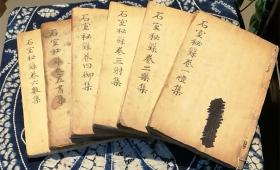 石室秘錄卷一禮集
石室秘錄卷二樂集
石室秘錄卷三射集
石室秘錄卷四御集
石室秘錄卷五書集
石室秘錄卷六數集